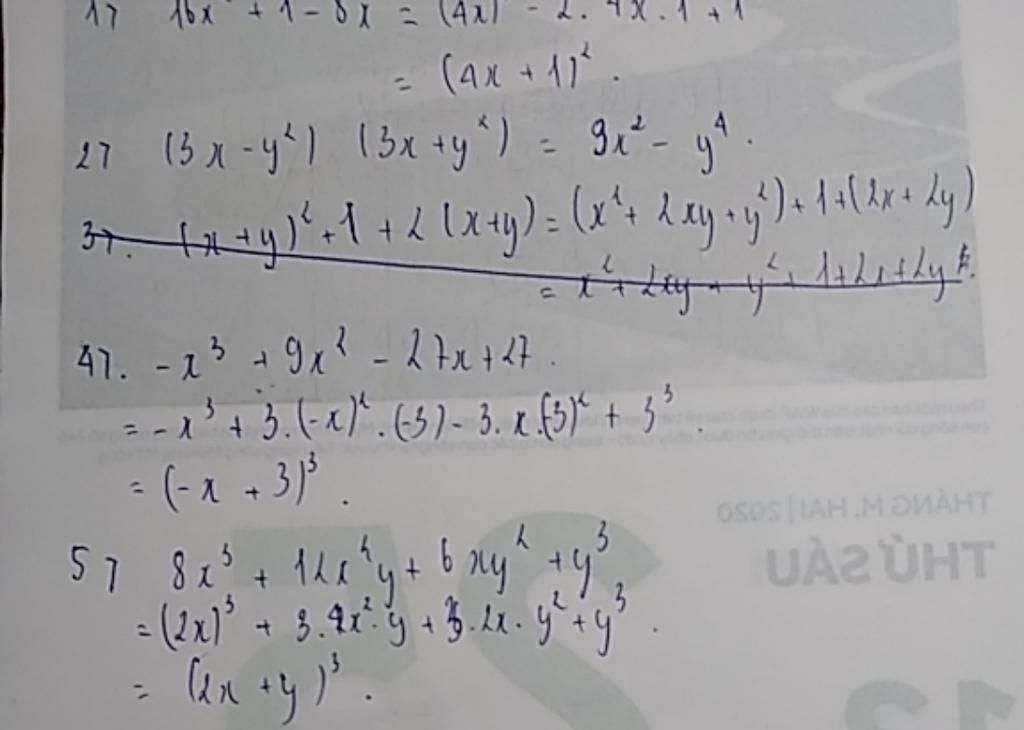 17 16x² + 1 - 8x = (4x)² - 2. 4x. 1 + 1
= (4x + 1)².
27 (3x - y²) (3x + y²) = 9x² - y⁴.
37. (x + y)² + 1 + 2 (x+y) = (x² + 2xy + y²) + 1 + (2x + 2y)
= x² + 2xy + y² + 1 + 2x + 2y
47. - x³ + 9x² - 27x + 27.
= - x³ + 3.(-x)².(-3) - 3. x.(-3)² + 3³.
= (-x + 3)³.
57 8x³ + 12x²y + 6xy² + y³
= (2x)³ + 3. 4x². y + 3. 2x. y² + y³.
= (2x + y)³.
THÁNG M. HAI | 2020
THỨ SÁU
25